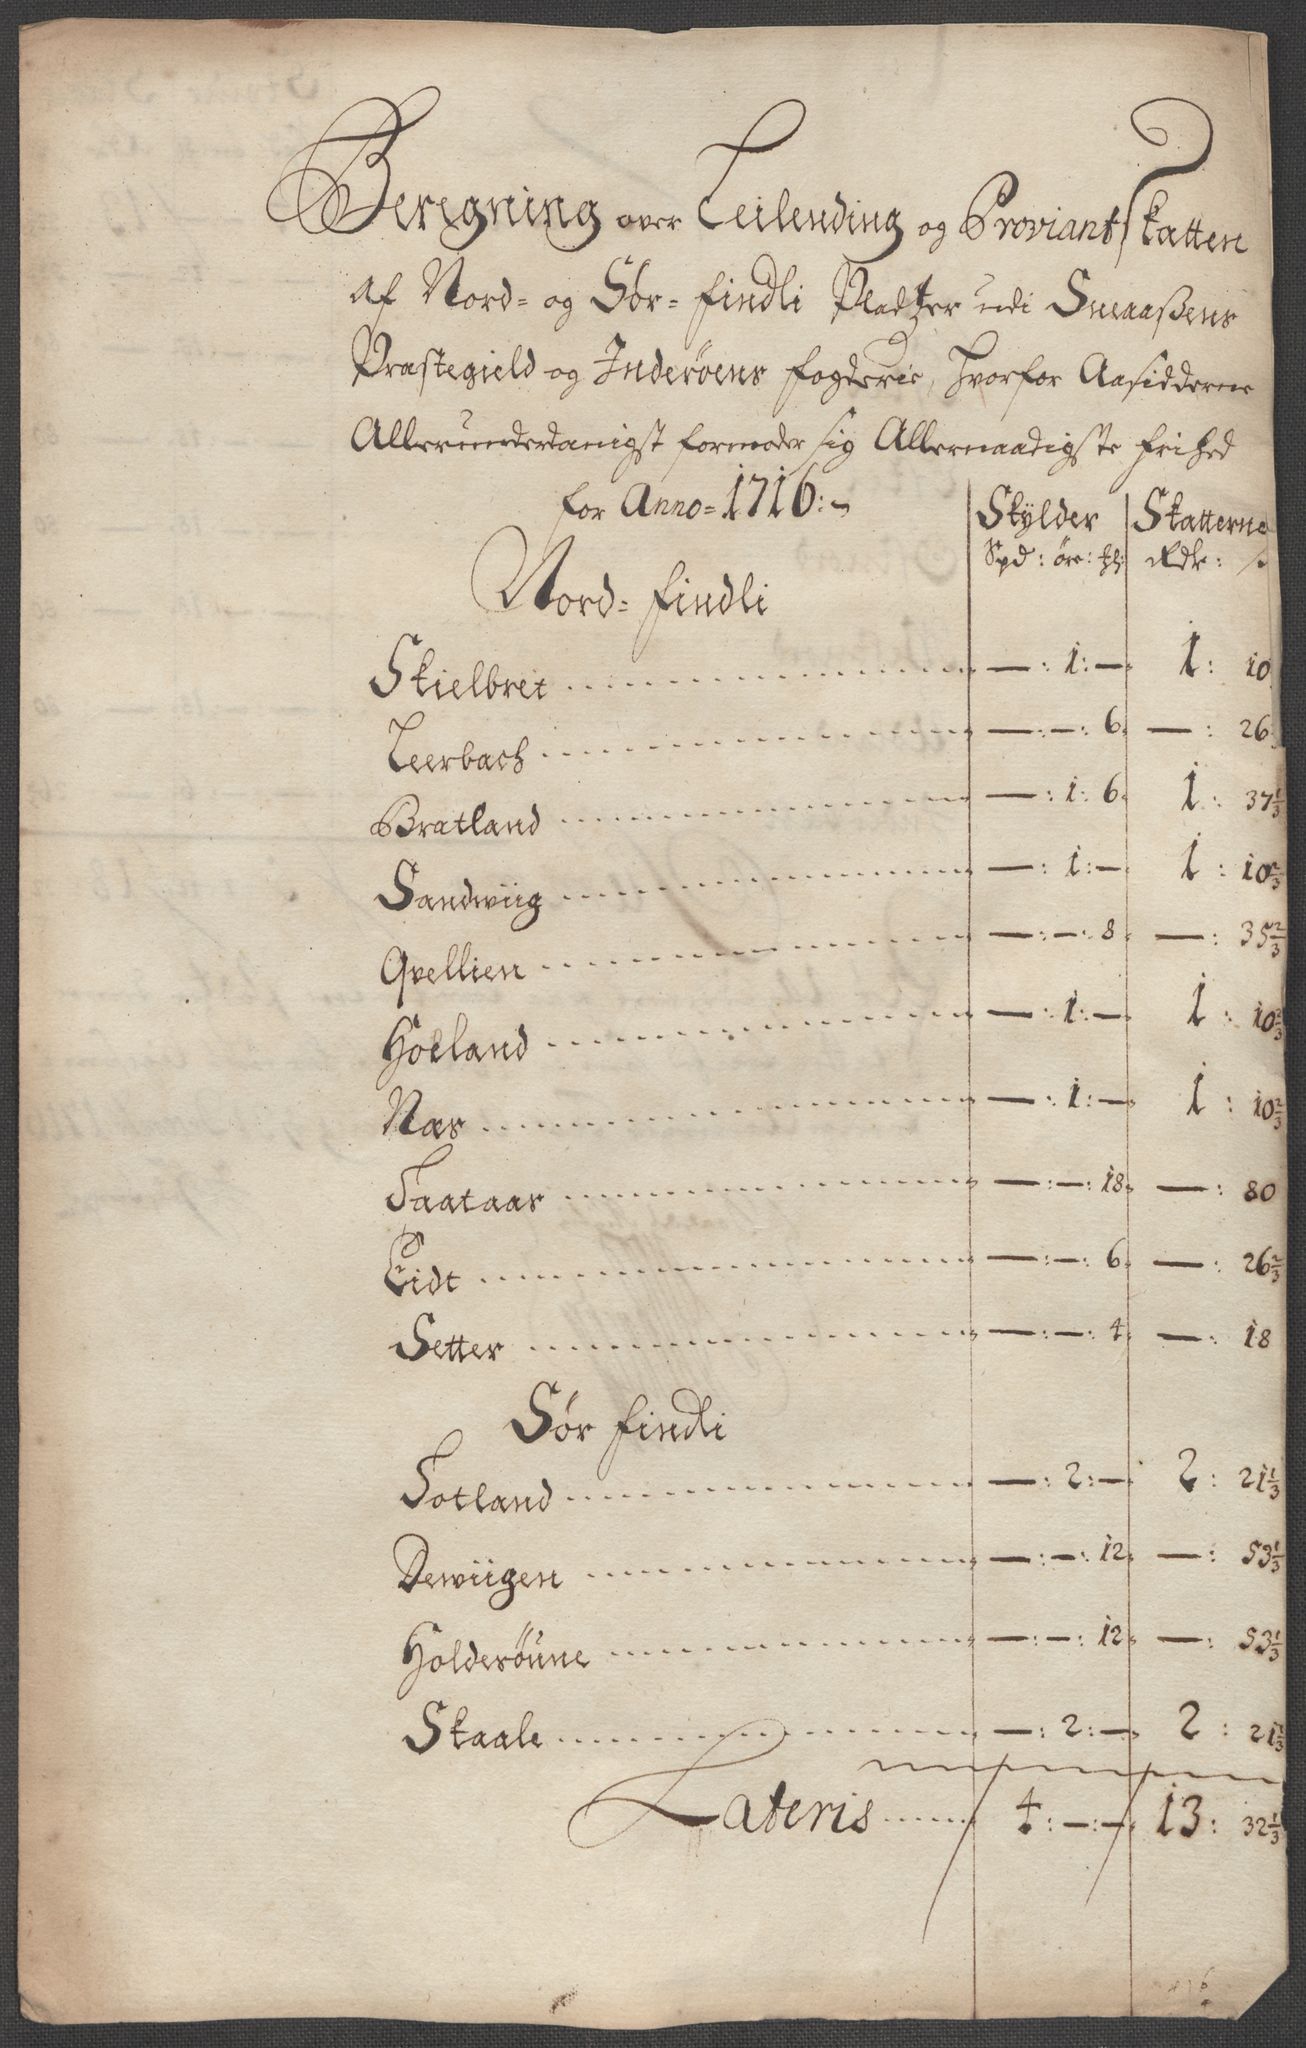 Beregning over Leilending og Proviant Skatten
af Nord- og Sør- findli Pladtzer udi Sneaaßens
Præstegield og Inderøens fogderie, hvorfor Aasidderne
Allerunderdanigst formoder sig Allernaadigste frihed
for Anno= 1716:
Skylder Skatterne
Spd: øre: Rdr:
Nord= findli
Skielbret — : 1: — 1: 10
Leerbach — : — : 6 — : 26
Bratland — : 1: 6 1: 37 1/3
Sandwiig — : 1: — 1: 10 2/3
Qvellien — : — : 8 — : 35 2/3
Holland — : 1: — 1: 10 2/3
Næs — : 1: — 1: 10 2/3
Taataas — : — : 18 — : 80
Eidt — : — : 6 — : 26 2/3
Setter — : — : 4 — : 18
Sør findli
Totland — : 2: — 2: 21 1/3
Dewiigen — : — : 12 — : 53 1/3
Holderøune — : — : 12 — : 53 1/3
Skaale — : 2: — 2: 21 1/3
Lateris 4: — : — 13: 32 1/3